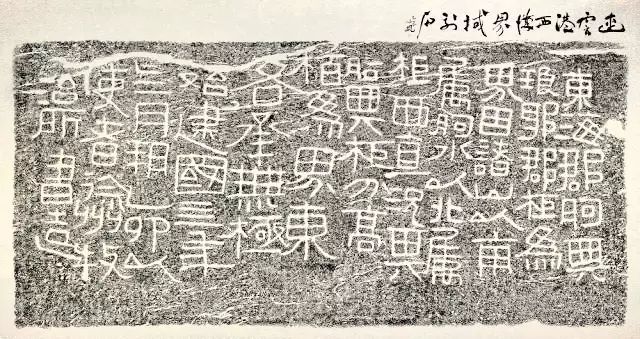 連雲港西連界域刻石
東海郡朐與
琅邪郡柜為
界因諸山以南
屬朐水以北屬
柜西直況其
朐與柜分高
桓為界東
各承無極
始建國亖年
亖月朔乙卯以
使者徐州牧
治所書造